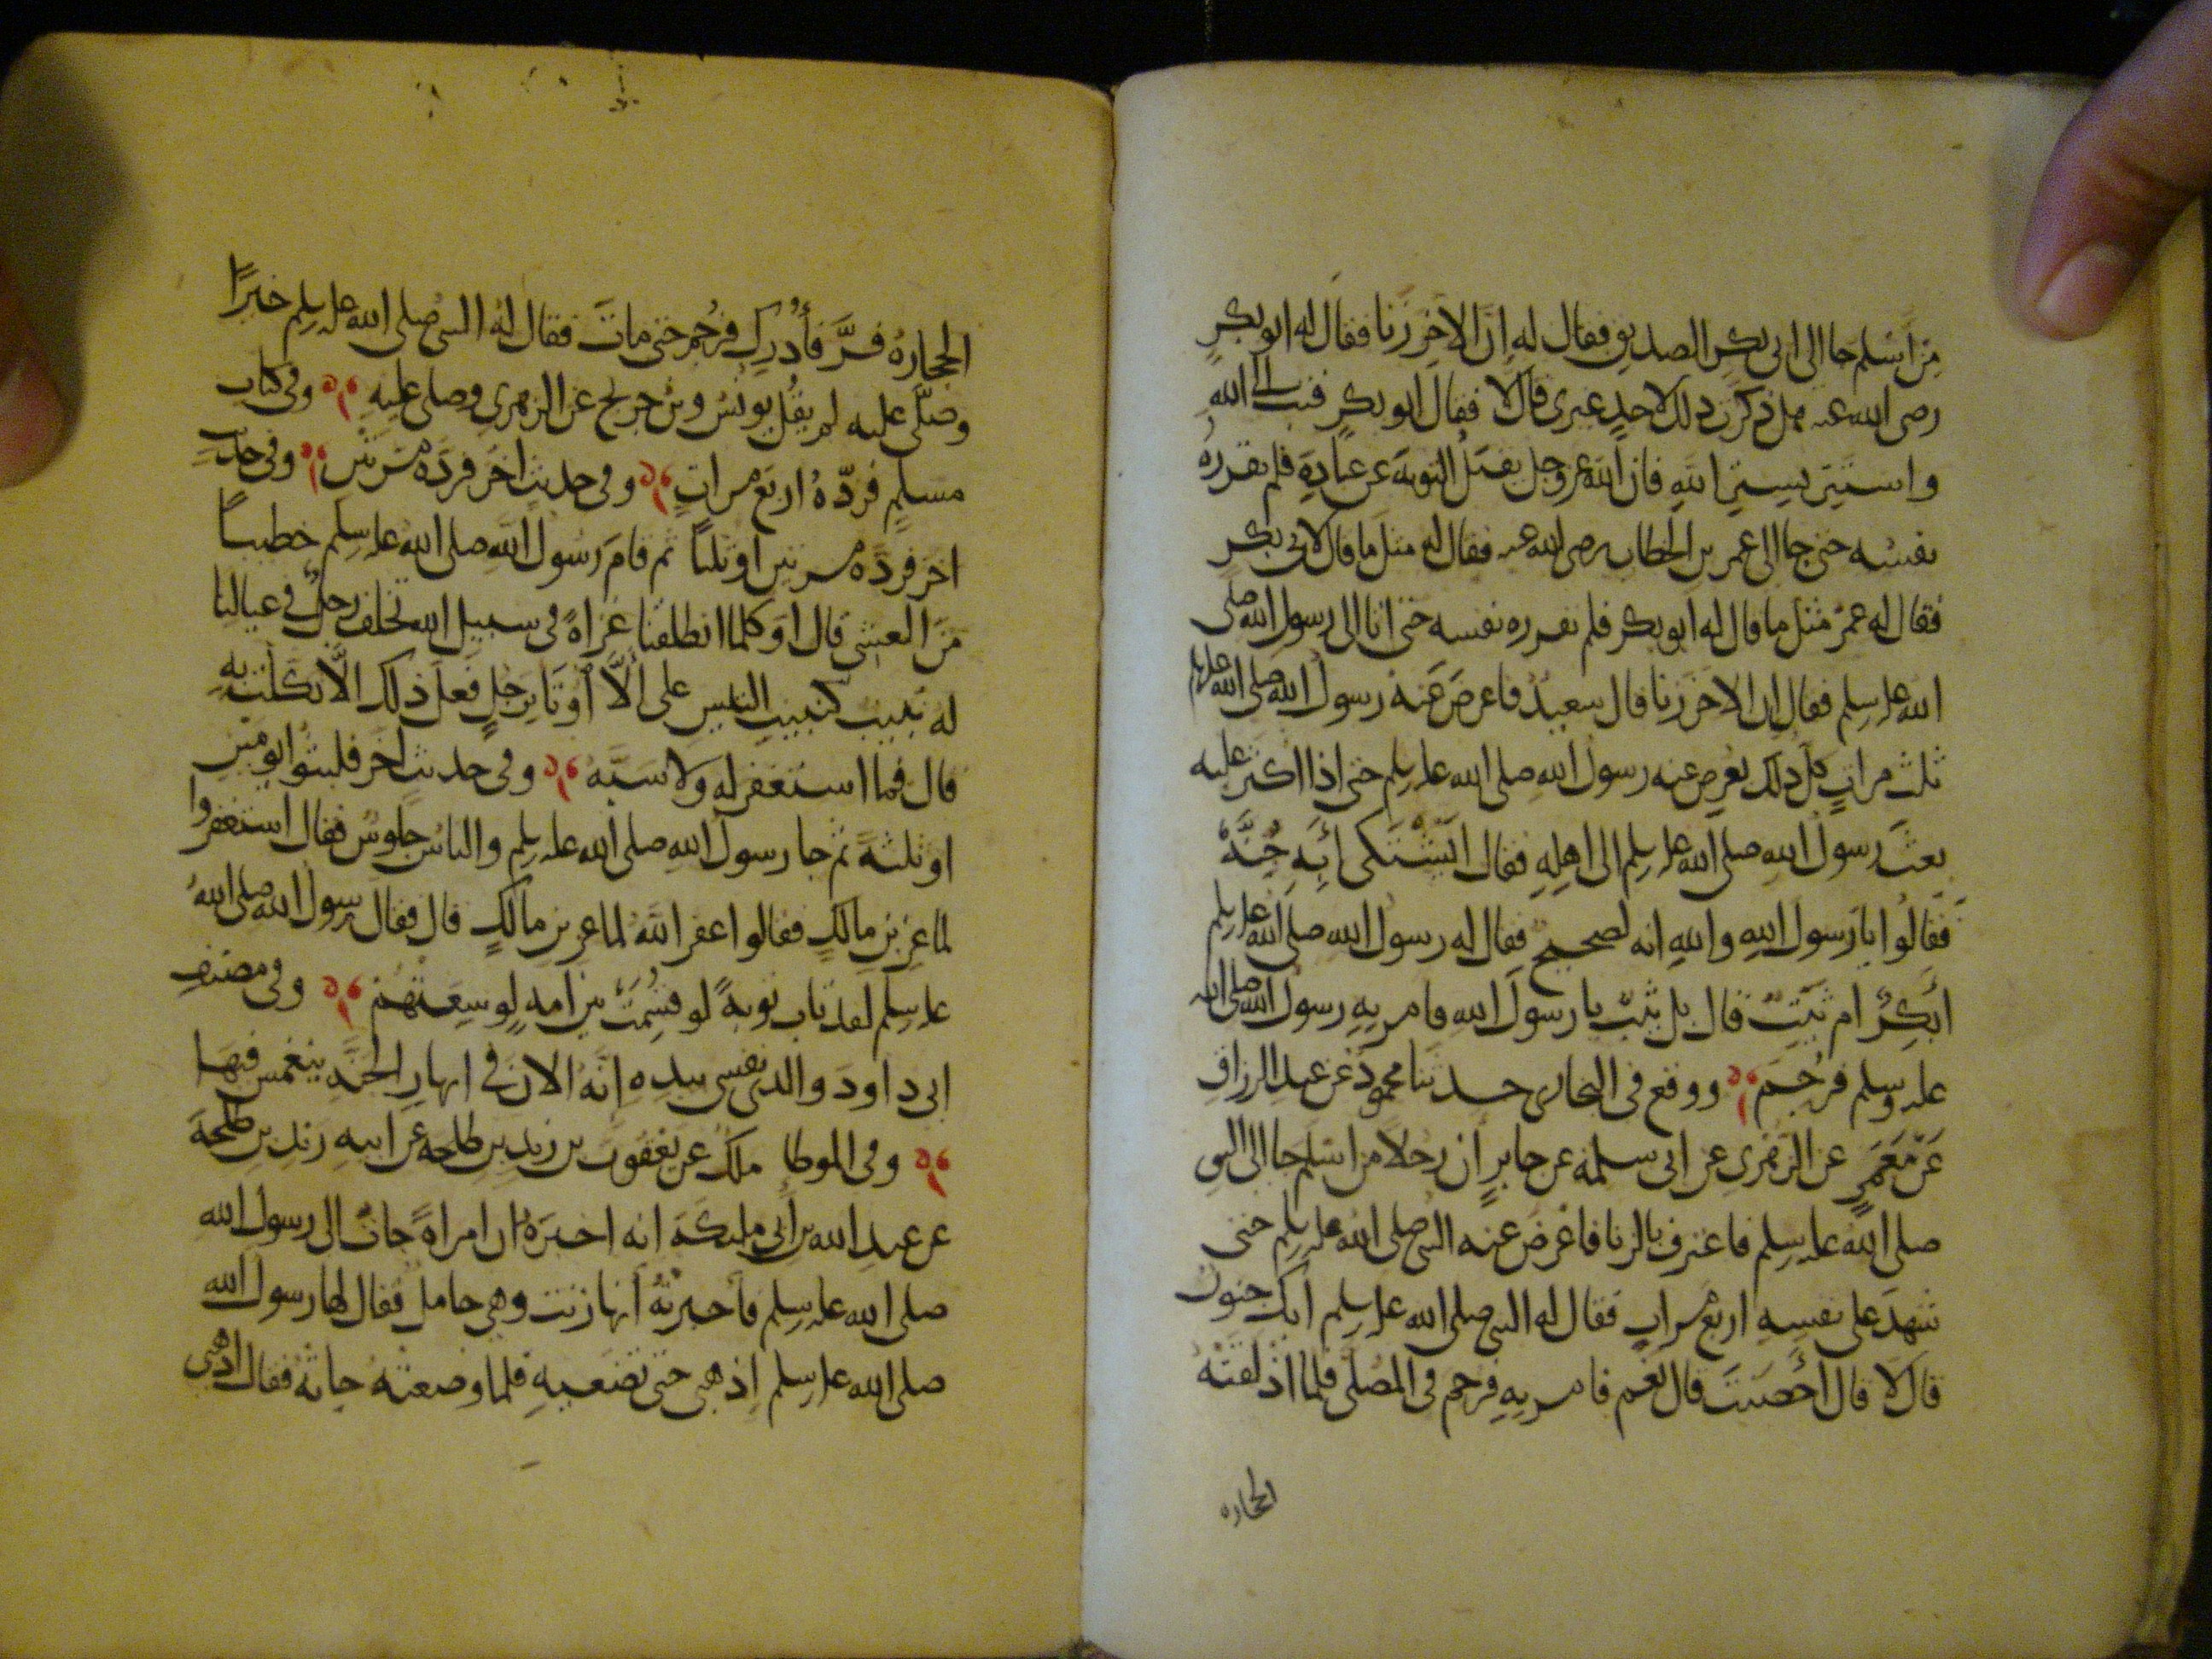 مِن اسلم جا الى ابى بكرٍ الصديق فقال له اِنّ الاخِر زنا فقال له ابو بكرٍ
رضى الله عنه هل ذكرت ذلك لاحدٍ غيرى قال لا فقال ابو بكرٍ فتب الى الله
واستتِر بسِترِ اللهِ فان اللهَ عز وجل يقبَلُ التوبةَ عن عبادِهِ فلم تقرره
نفسُه حتى جا الى عمر بن الخطاب رضى الله عنه فقال له مثل ما قال لابى بكر
فقال له عمرُ مثل ما قال له ابو بكر فلم تقرره نفسه حتى اتا الى رسول الله صلى
الله عليه وسلم فقال ان الاخر زنا قال سعيدٌ فاعرضَ عنه رسول الله صلى الله عليه وسلم
ثلث مراتٍ كل ذلك يعرِض عنه رسول الله صلى الله عليه وسلم حتى اذا اكثر عليه
بعثَ رسول الله صلى الله عليه وسلم الى اهلِهِ فقال ايَشْتَكى أبِهِ جِنَّةٌ
فقالُوا يا رسول الله واللهِ انه لصحيح فقال له رسول الله صلى الله عليه وسلم
أبِكرٌ ام ثيّبٌ قال بل ثيبٌ يا رسول الله فامر بِهِ رسول الله صلى الله
عليه وسلم فرُجِمَ ووقع فى البخارى حدثنا محمودٌ عن عبد الرزاق
عن مَعْمَرٍ عن الزهرى عن ابى سلمة عن جابرٍ ان رجلا من اسلم جا الى النبى
صلى الله عليه وسلم فاعترف بالزنا فاعرض عنه النبى صلى الله عليه وسلم حتى
شهدَ على نفسِهِ اربعَ مراتٍ فقال له النبى صلى الله عليه وسلم أبك جنون
قال لا قال أحصَنتَ قال نعم فامر بِهِ فرجم فى المُصَلّى فلما اذلقَتْهُ
الحجاره
الحجارهُ فَرَّ فأُدْرِك فرُجم حتى ماتَ فقال لهُ النبى صلى الله عليه وسلم خيرًا
وصلَّى عليه لم يقُل يونُسُ وبنُ جريجٍ عن الزهرى وصلى عليهِ وفى كتاب
مسلمٍ فردّهُ اربَع مراتٍ وفى حديث اخَر فردّه مرتَيْن وفى حديثٍ
اخر فردّه مرتين او ثلثًا ثم قامَ رسُول الله صلى الله عليه وسلم خطيبًا
مِنَ العشى قال اوَكلما انطلقنا غزاةً فى سبيل الله تخلف رجلٌ فى عيالنا
له نبيب كنبيب التيس على ألّا أُوتَا بِرَجُلٍ فعل ذلك الّا نكلتُ بِهِ
قال فما استغفر له ولا سَبَّهُ وفى حديث اخر فلبثُوا يومَين
او ثلثةً ثم جا رسول الله صلى الله عليه وسلم والناسُ جلوسٌ فقال استغفروا
لماعِز بن مالكٍ فقالوا غفر اللهُ لماعز بن مالكٍ قال فقال رسول الله صلى الله
عليه وسلم لقد تاب توبةً لو قُسِمَتْ بين امةٍ لوسِعَتْهُمْ وفى مصنف
ابى داود والذى نفسى بيده انّه الان فى انهار الجنّه ينغمس فيها
وفى الموطا ملك عن يعقوب بن زيد بن طلحة عن ابيه زيد بن طلحة
عن عبد الله بن أبى مليكة انه اخبرَه ان امراةً جات الى رسول الله
صلى الله عليه وسلم فاخبرتهُ انها زنت وهى حامل فقال لها رسول الله
صلى الله عليه وسلم اذهبى حتى تضعيهِ فلما وضعته جاته فقال اذهبى